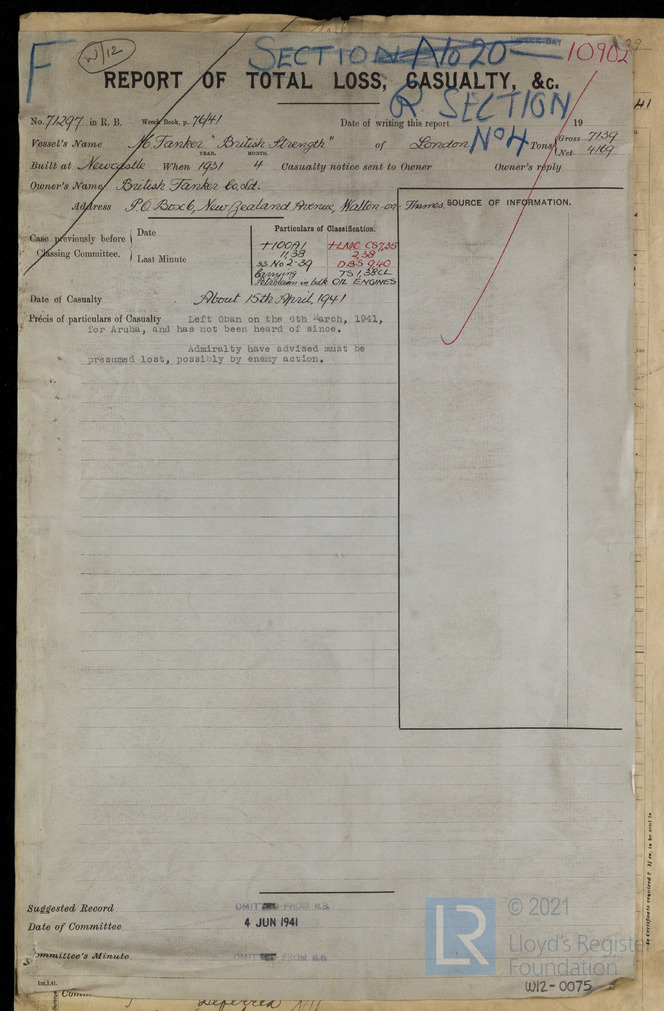 F W/12 SECTION No 20 10902
REPORT OF TOTAL LOSS, CASUALTY, &c.
R. SECTION
No 4
No. 71297 in R. B. Wreck Book, p. 76/41 Date of writing this report 19
Vessel's Name M. Tanker "British Strength" of London Tons Gross 7139
Net 4169
YEAR. MONTH.
Built at Newcastle When 1931 4 Casualty notice sent to Owner Owner's reply
Owner's Name British Tanker Co. Ld.
Address P.O Box 6, New Zealand Avenue, Walton-on-Thames.
SOURCE OF INFORMATION.
Case previously before Classing Committee.
Date
Last Minute
Particulars of Classification.
+100A1 +LMC CS7,35
11,38 2,38
ss. No 2-39 DBS 9,40
Carrying TS 1,38 CL
Petroleum in bulk OIL ENGINES
Date of Casualty About 15th April, 1941
Précis of particulars of Casualty Left Oban on the 6th March, 1941,
for Aruba, and has not been heard of since.
Admiralty have advised must be
presumed lost, possibly by enemy action.
Suggested Record OMITTED FROM R.B.
Date of Committee 4 JUN 1941
Committee's Minute OMITTED FROM R.B.
© 2021
LR
Lloyd's Register
Foundation
W12-0075
Deferred